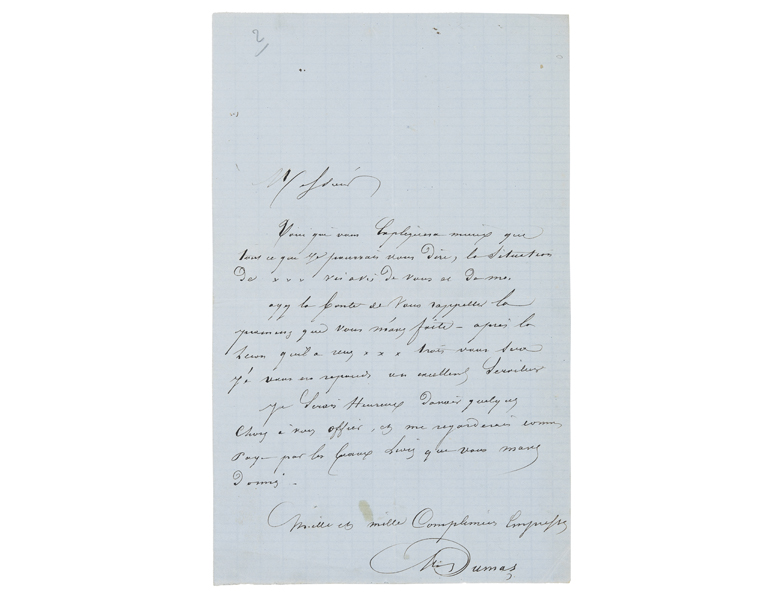 2
Monsieur
Voici qui vous Expliquera mieux que
tous ce que je pourrais vous dire, la Situation
De x x x vis avis de vous et de me.
ayy la Bonte de Vous rappeller la
promess que vous m'avez faite - après la
Lecon qu'il a reçu x x x vous sera
Je vous en reponds un excellent Serviteur
Je Serais Heureux davoir quelques
Chose à vous offrir, et me regarderais comme
Paye par les beaux Livres que vous mavez
Donnés -
Mille et mille Complimens Empressés
Dumas